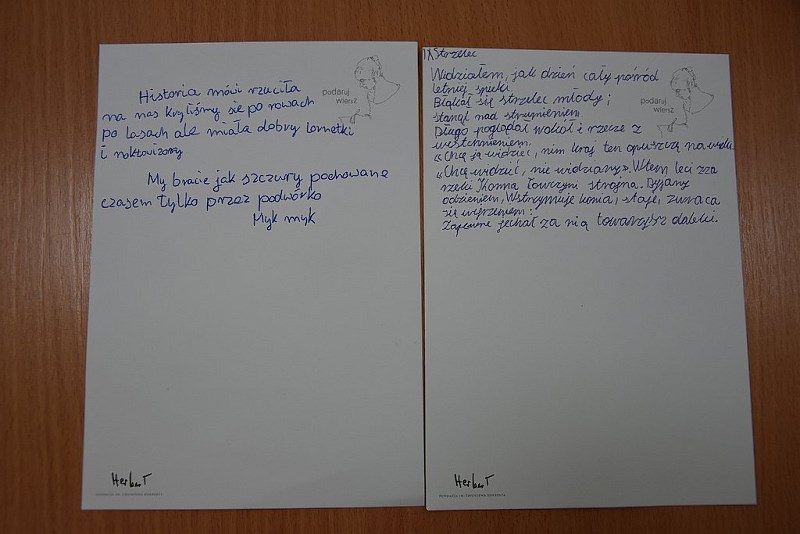 Historia mówi rzuciła
na nas kryliśmy się po rowach
po lasach ale miała dobry lornetki
i noktowizory
My bracie jak szczury pochowane
czasem tylko przez podwórko
Myk myk
Podaruj
wiersz
Herbert
IX Strzelec
Widziałem, jak dzień cały pośród
letniej spieki,
Błąkał się strzelec młody;
stanął nad strumieniem,
Długo poglądał wokół i rzecze z
westchnieniem:
"Chcę ją widzieć, nim kraj ten opuszczę na wieki
"Chcę widzieć, nie widziany". Wtem leci zza
rzeki Konna łowczyni strojna. Dyjany
odzieniem, Wstrzymuje konia, staje, zwraca
się wejrzeniem:
Zapewne jechał za nią towarzysz daleki.
Podaruj
wiersz
Herbert